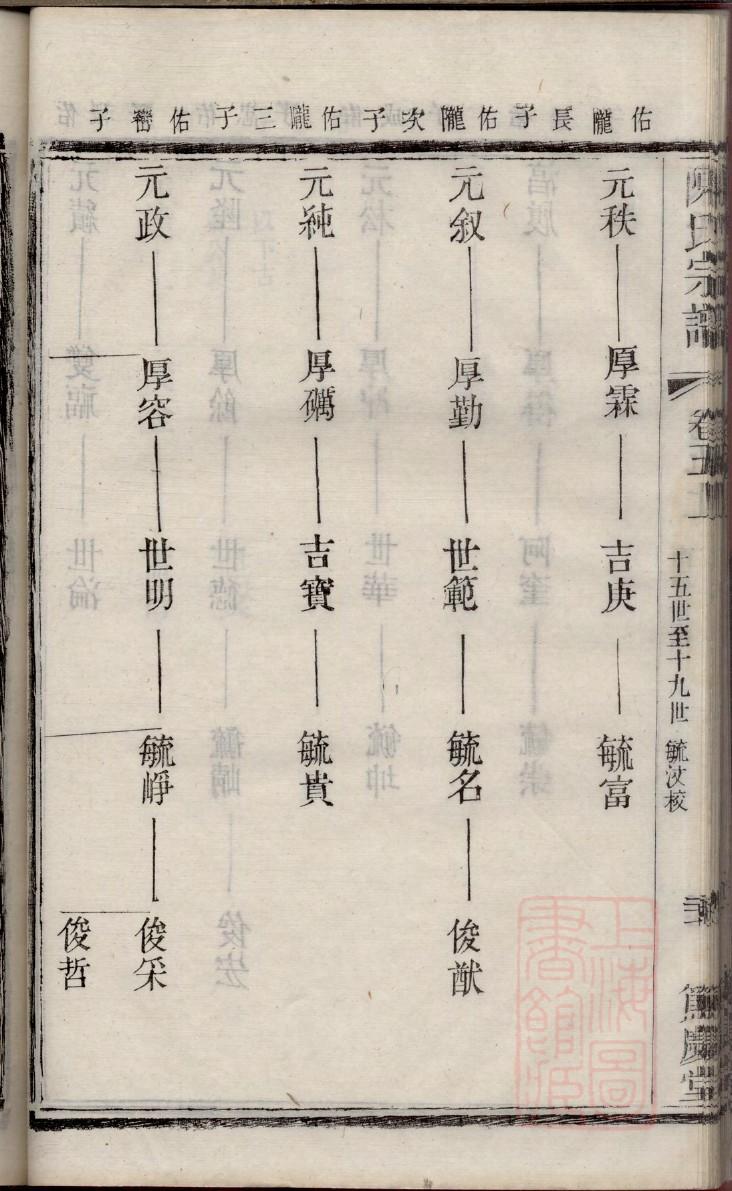 氏宗譜 卷五上 十五世至十九世 毓汶校 篤慶堂
佑隴長子
元秩 厚霖 吉庚 毓富
佑隴次子
元叙 厚勤 世範 毓名 俊猷
佑隴三子
元純 厚礪 吉寶 毓貴
佑 子
元政 厚容 世明 毓崢 俊采
俊哲
上海圖書館藏